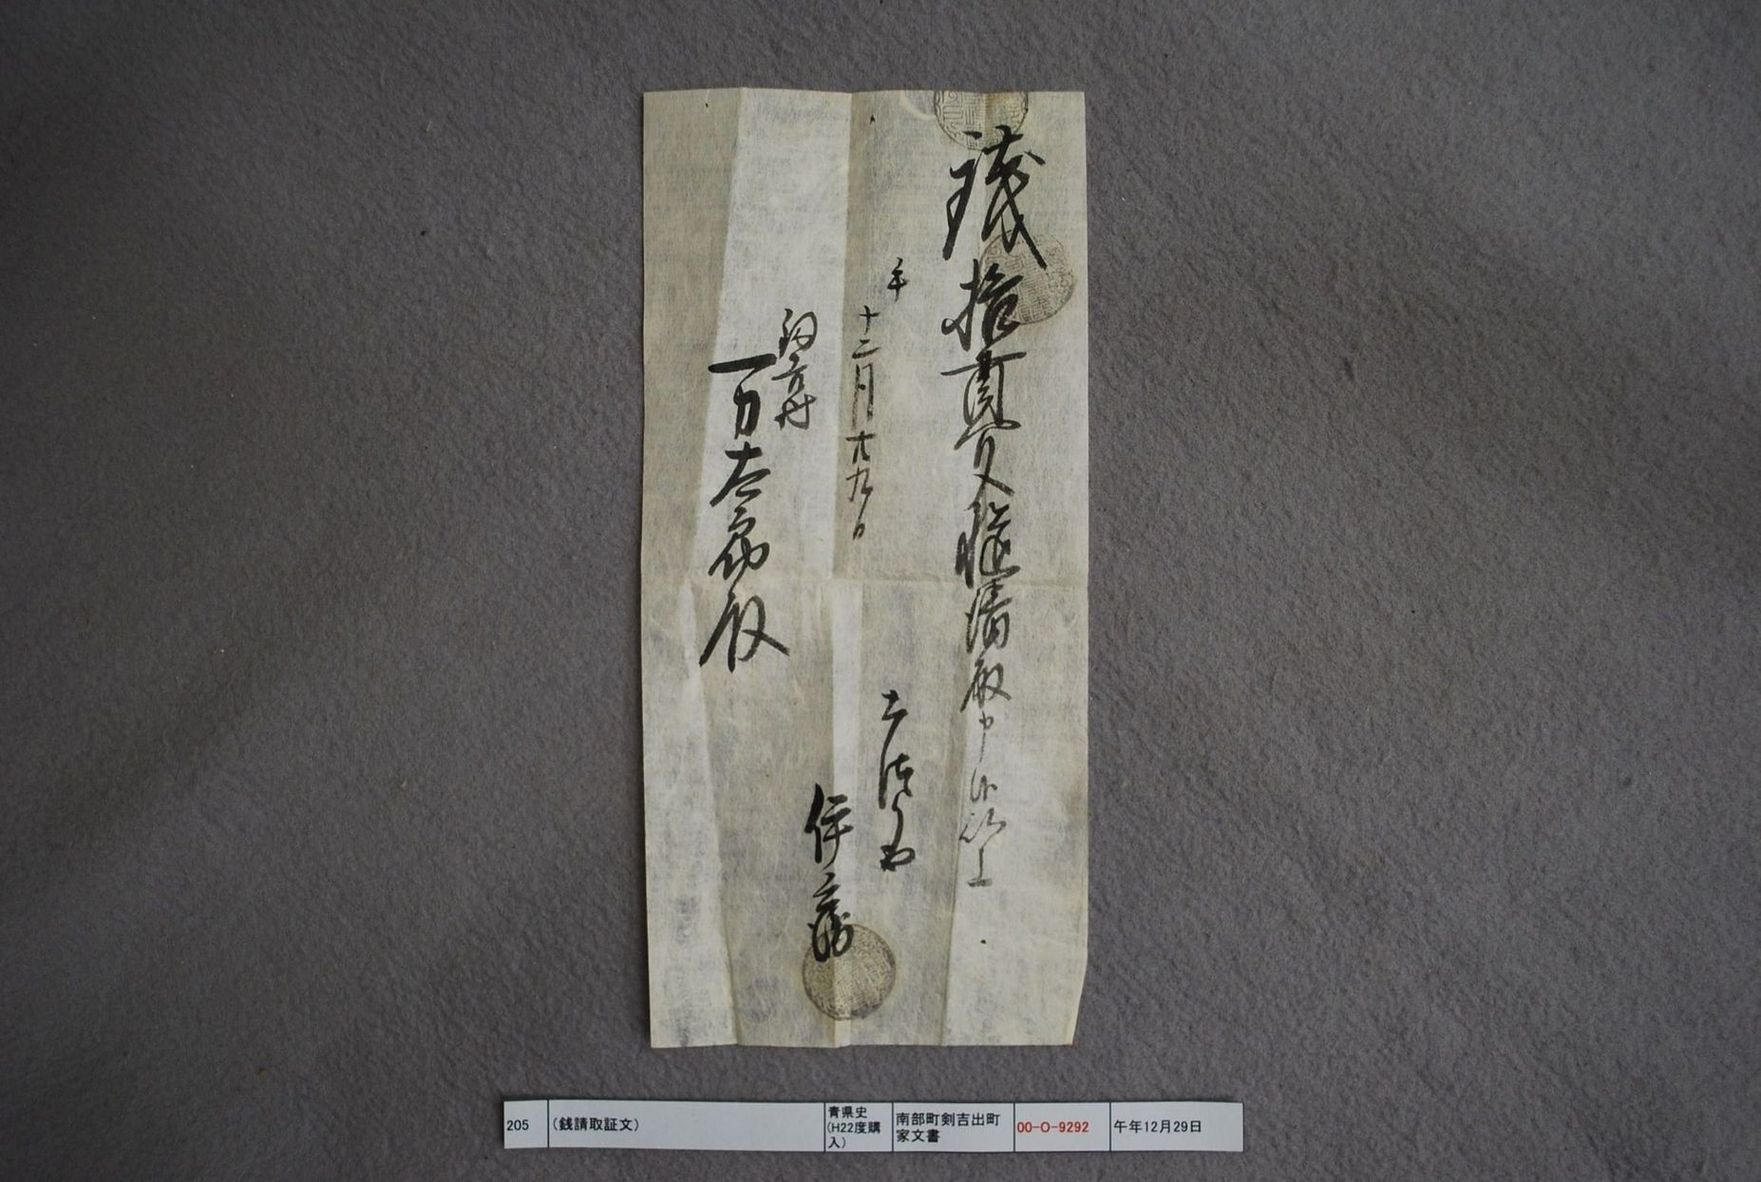 銭拾貫文慥請取申候以上
午
十二月廿九日
伊藤
万太郎殿
205
(銭請取証文)
青県史
(H22度購
入)
南部町剣吉出町
家文書
00-O-9292
午年12月29日